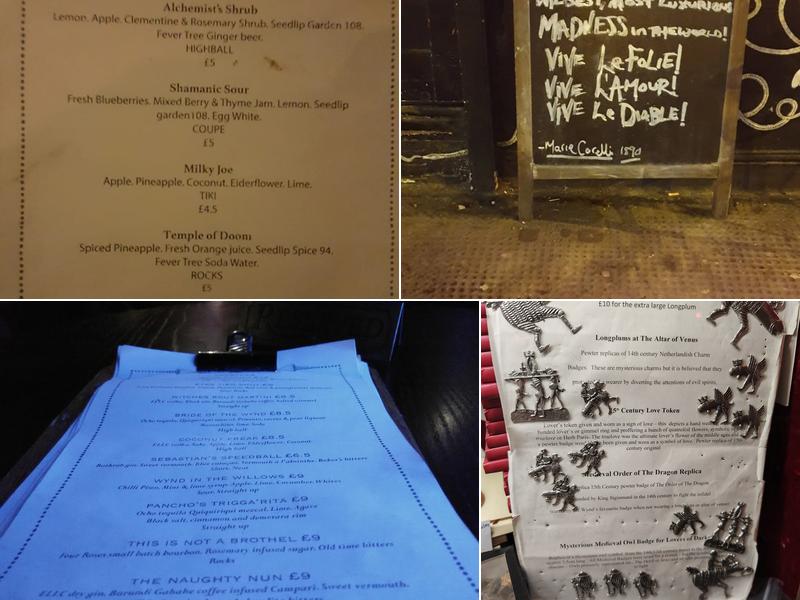 Alchemist's Shrub
Lemon. Apple. Clementine & Rosemary Shrub. Seedlip Garden 108.
Fever Tree Ginger beer.
HIGHBALL
£5
Shamanic Sour
Fresh Blueberries. Mixed Berry & Thyme Jam. Lemon. Seedlip
garden108. Egg White.
COUPE
£5
Milky Joe
Apple. Pineapple. Coconut. Elderflower. Lime.
TIKI
£4.5
Temple of Doom
Spiced Pineapple. Fresh Orange juice. Seedlip Spice 94.
Fever Tree Soda Water.
ROCKS
£5
WILDEST, MOST LUXURIOUS
MADNESS IN THE WORLD!
ViVE Le FOLIE!
ViVE L'AMOUR!
ViVE Le DiABLE!
-Marie Corelli 1890
WITCHES BOUT MARTINI £8.5
Straight up
BRIDE OF THE WYND £8.5
High ball
COCONUT FREAK £8.5
High ball
SEBASTIAN'S SPEEDBALL £6.5
WYND IN THE WILLOWS £9
Chilli Pisco, Mint & lime syrup, Apple, Lime, Cucumber, Whites
Sour, Straight up
PANCHO'S TRIGGA'RITA £9
Ocho tequila, Quiquiriqui mezcal, Lime, Agave
Black salt, cinnamon and demerara rim
Straight up
THIS IS NOT A BROTHEL £9
Four Roses small batch bourbon. Rosemary infused sugar. Old time bitters
Rocks
THE NAUGHTY NUN £9
ELLC dry gin. Burundi Gahahe coffee infused Campari. Sweet vermouth.
£10 for the extra large Longplum
Longplums at The Altar of Venus
Pewter replicas of 14th century Netherlandish Charm
Badges. These are mysterious charms but it is believed that they
wearer by diverting the attentions of evil spirits.
15th Century Love Token
Lover's token given and worn as a sign of love - this depicts a hand
century original
Medieval Order of The Dragon Replica
Replica 15th Century pewter badge of The Order of The Dragon
founded by King Sigismund in the 14th century to fight the infidel
Wynd's favourite badge when not wearing a
Mysterious Medieval Owl Badge for Lovers of Dark